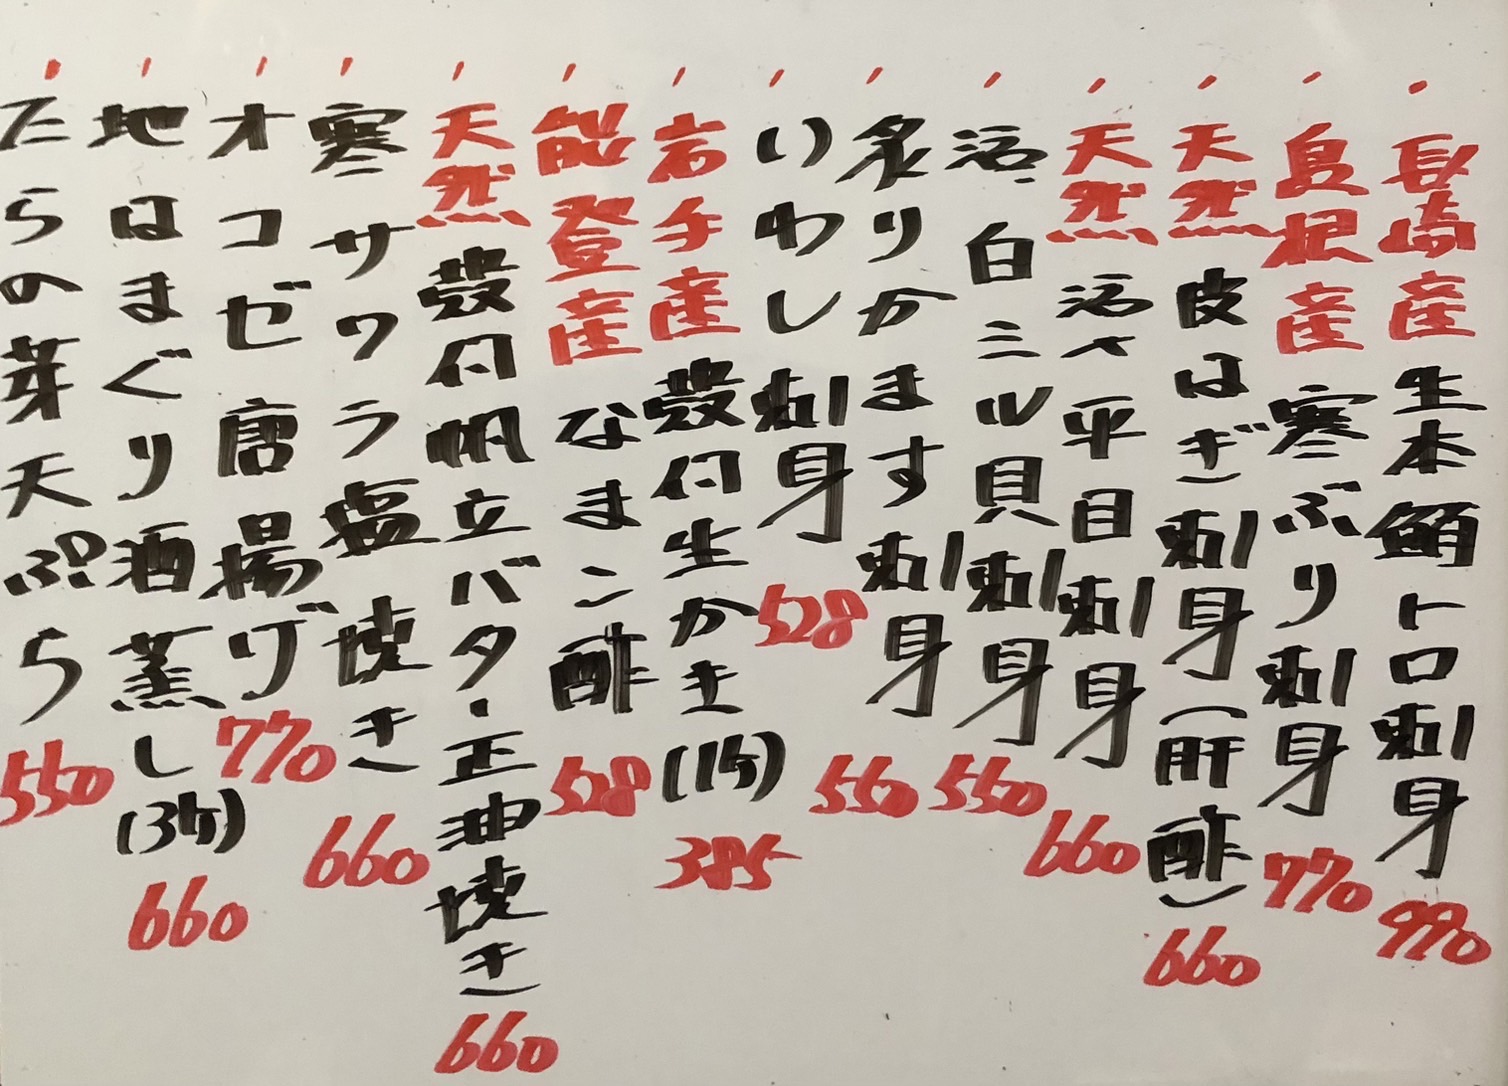 長崎産 生本鮪トロ刺身 990
島根産 寒ぶり刺身 770
天然 皮はぎ刺身(肝酢) 660
天然 活〆平目刺身 660
活 白ミル貝刺身 550
炙りかます刺身 550
いわし刺身 528
岩手産 殻付生かき(1ヶ) 385
能登産 なまこ酢 528
天然 殻付帆立バター・正油焼き 660
寒サワラ塩焼き 660
オコゼ唐揚げ 770
地はまぐり酒蒸し(3ヶ) 660
たらの芽天ぷら 550